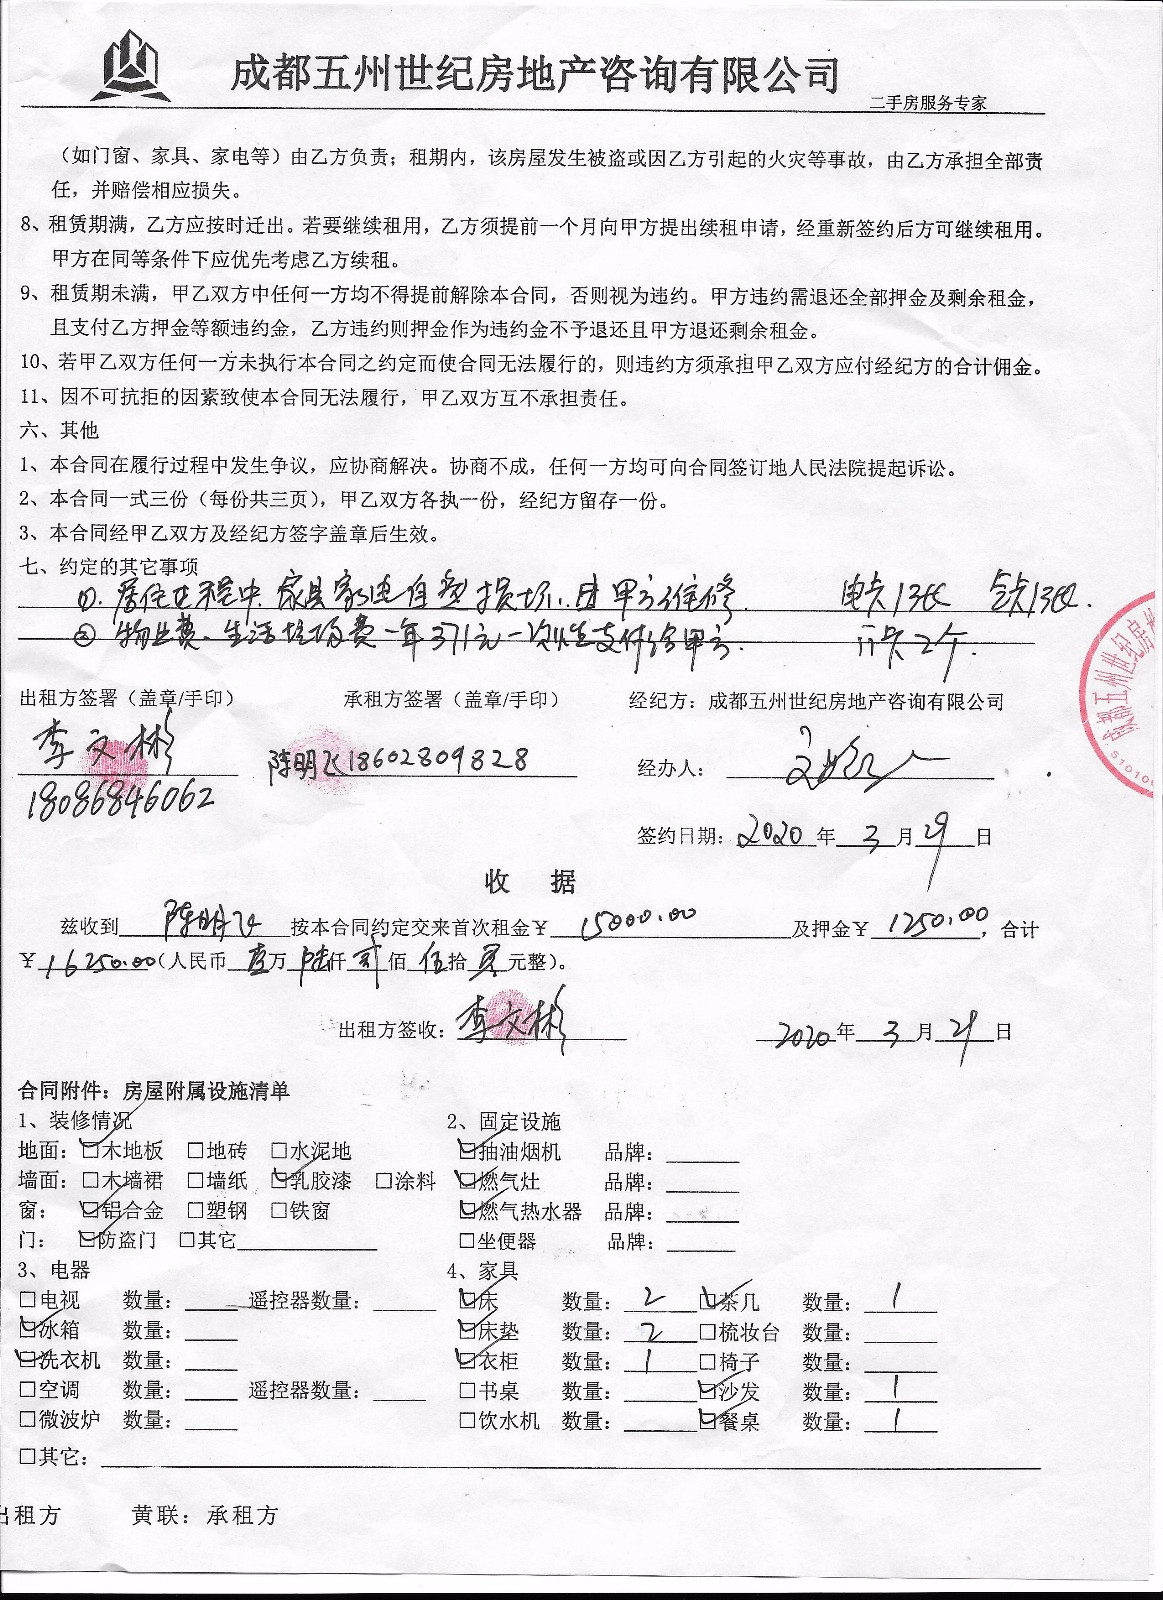 成都五州世纪房地产咨询有限公司
二手房服务专家
（如门窗、家具、家电等）由乙方负责；租期内，该房屋发生被盗或因乙方引起的火灾等事故，由乙方承担全部责
任，并赔偿相应损失。
8、租赁期满，乙方应按时迁出。若要继续租用，乙方须提前一个月向甲方提出续租申请，经重新签约后方可继续租用。
甲方在同等条件下应优先考虑乙方续租。
9、租赁期未满，甲乙双方中任何一方均不得提前解除本合同，否则视为违约。甲方违约需退还全部押金及剩余租金，
且支付乙方押金等额违约金，乙方违约则押金作为违约金不予退还且甲方退还剩余租金。
10、若甲乙双方任何一方未执行本合同之约定而使合同无法履行的，则违约方须承担甲乙双方应付经纪方的合计佣金。
11、因不可抗拒的因素致使本合同无法履行，甲乙双方互不承担责任。
六、其他
1、本合同在履行过程中发生争议，应协商解决。协商不成，任何一方均可向合同签订地人民法院提起诉讼。
2、本合同一式三份（每份共三页），甲乙双方各执一份，经纪方留存一份。
3、本合同经甲乙双方及经纪方签字盖章后生效。
七、约定的其它事项
①. 居住过程中 家具家电自然损坏，由甲方维修. 电卡1张 气卡1张.
② 物业费、生活垃圾费一年371元一次性支付给甲方. 门卡2个.
出租方签署（盖章/手印） 承租方签署（盖章/手印） 经纪方：成都五州世纪房地产咨询有限公司
李文彬 陈明飞18602809828 经办人：
18086846062
签约日期：2020年3月29日
成都五州世纪房
收 据
兹收到 陈明飞 按本合同约定交来首次租金￥15000.00 及押金￥1250.00，合计
￥16250.00（人民币 壹万 陆仟 贰佰 伍拾 零元整）。
出租方签收：李文彬 2020年3月29日
合同附件：房屋附属设施清单
1、装修情况 2、固定设施
地面：☑木地板 □地砖 □水泥地 ☑抽油烟机 品牌：
墙面：□木墙裙 □墙纸 ☑乳胶漆 □涂料 ☑燃气灶 品牌：
窗： ☑铝合金 □塑钢 □铁窗 ☑燃气热水器 品牌：
门： ☑防盗门 □其它 □坐便器 品牌：
3、电器 4、家具
□电视 数量： 遥控器数量： ☑床 数量：2 ☑茶几 数量：1
☑冰箱 数量： ☑床垫 数量：2 □梳妆台 数量：
☑洗衣机 数量： ☑衣柜 数量：1 □椅子 数量：
□空调 数量： 遥控器数量： □书桌 数量： ☑沙发 数量：1
□微波炉 数量： □饮水机 数量： ☑餐桌 数量：1
□其它：
出租方 黄联：承租方